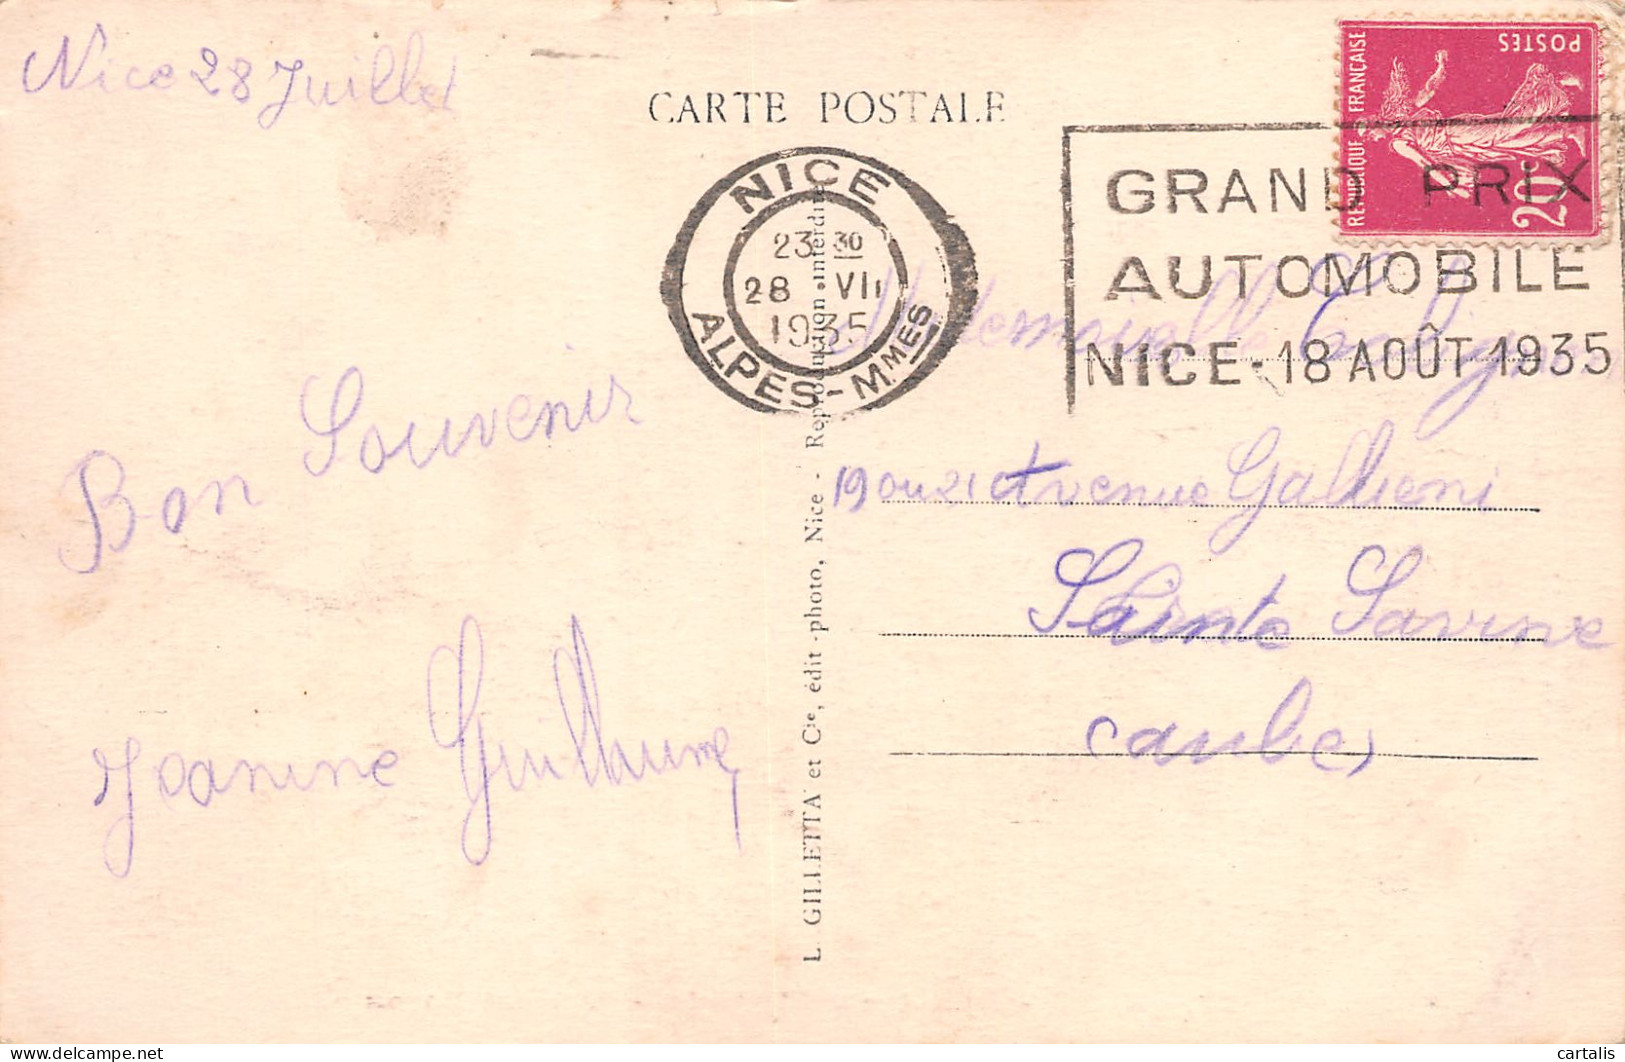 Nice 28 Juillet
CARTE POSTALE
REPUBLIQUE FRANÇAISE
POSTES
20c
NICE
23 30
28 VII
1935
ALPES-MMES
GRAND PRIX
AUTOMOBILE
NICE - 18 AOÛT 1935
Bon Souvenir
Jeanine Guillaume
L. GILLETTA et Cie, édit-photo, Nice - Reproduction interdite
Mademoiselle
19 ou 21 Avenue Gallieni
Sainte Savine
(aube)
cartalis